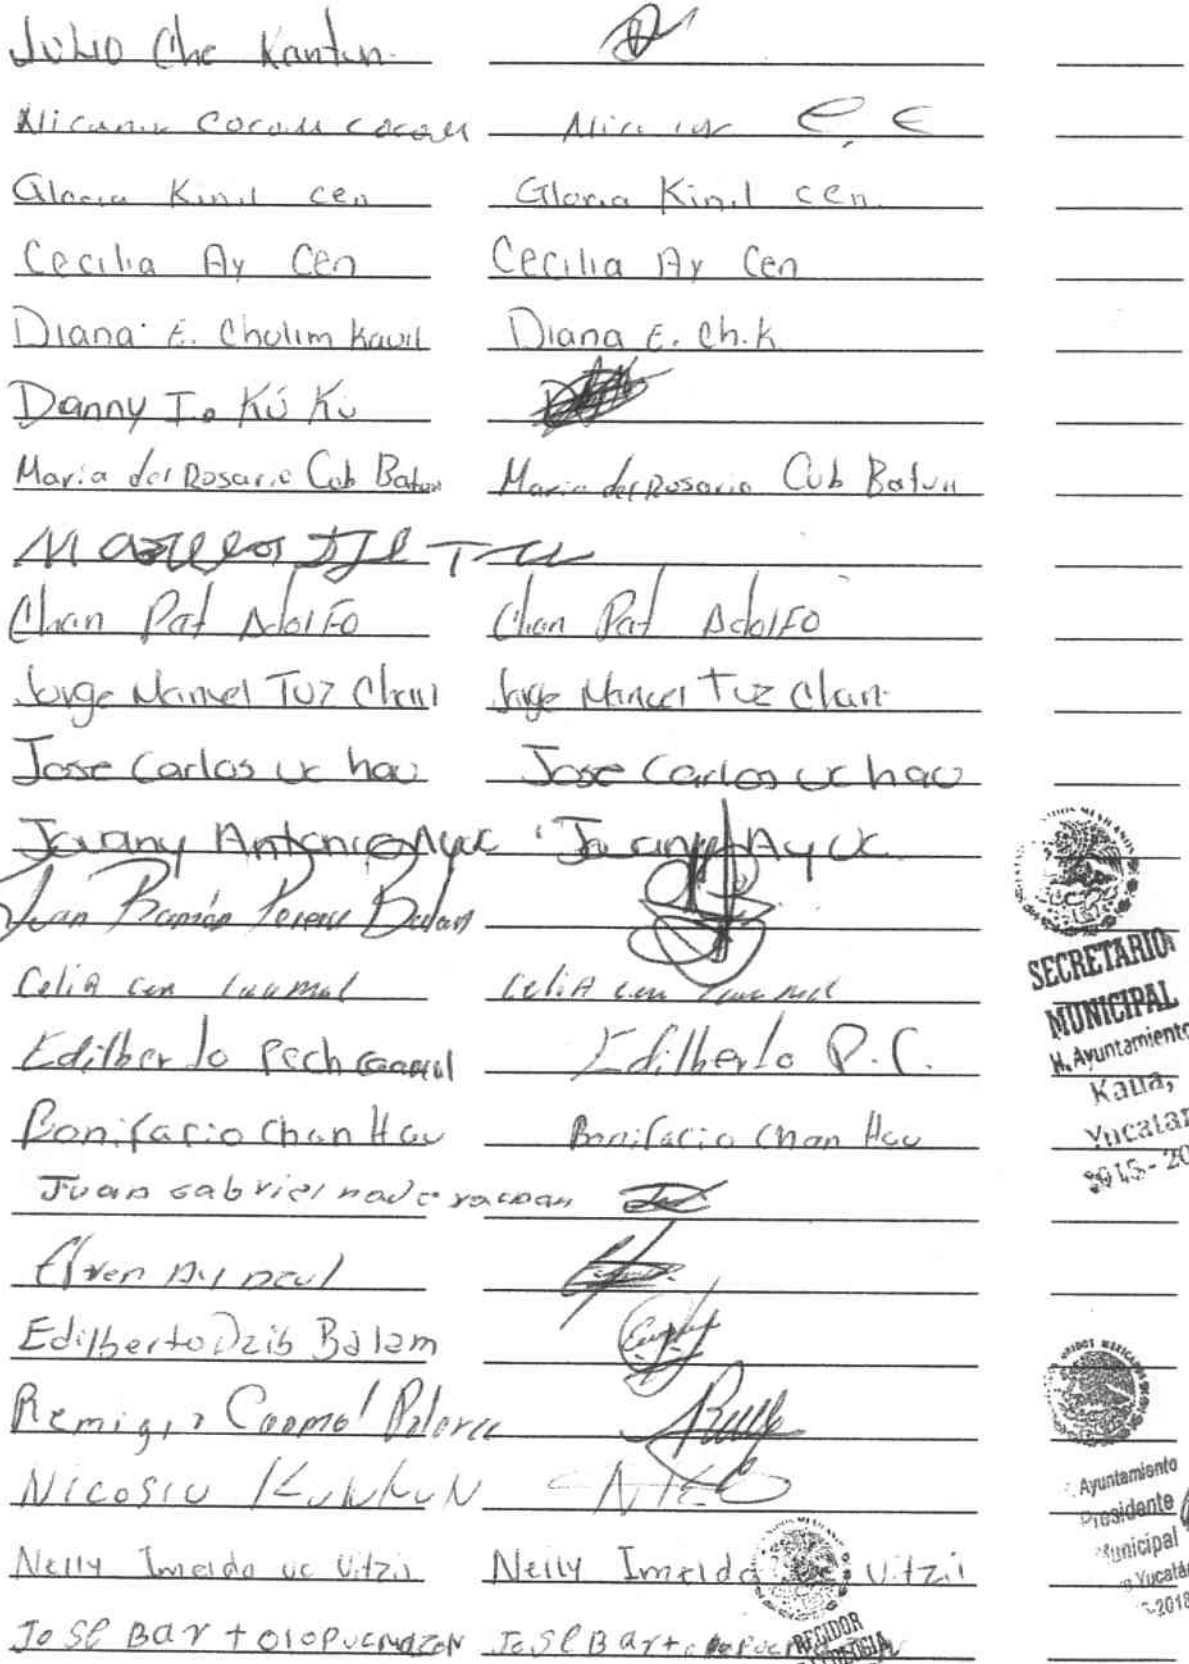 Julio Che Kantun.
Nicanor Cocom cocom Nicanor C. C
Gloria Kinil cen Gloria Kinil cen.
Cecilia Ay Cen Cecilia Ay Cen
Diana E. Cholim Kauil Diana E. Ch.K
Danny I. Kú Kú
Maria del Rosario Cub Batun Maria del Rosario Cub Batun
Chan Pat Adolfo Chan Pat Adolfo
Jorge Manuel Tuz Chan Jorge Manuel Tuz Chan
Jose Carlos uc hau Jose Carlos uc hau
Jovany Antonio Ay uc Jovany Ay uc
Juan Ramón Perera Balam
Celia cen Caamal Celia cen Caamal
Edilberto Pech Caamal Edilberto P. C.
Bonifacio Chan Hau Bonifacio Chan Hau
Juan Gabriel
Ay
Edilberto Dzib Balam
Remigio Caamal
Nicosio
Nelly Imelda uc Uitzil Nelly Imelda Uitzil
Jose Bar+olo Jose Bar+
SECRETARIO
MUNICIPAL
H. Ayuntamiento
Kaua,
Yucatan
Ayuntamiento
Presidente
Municipal
Yucatán
2018
REGIDOR